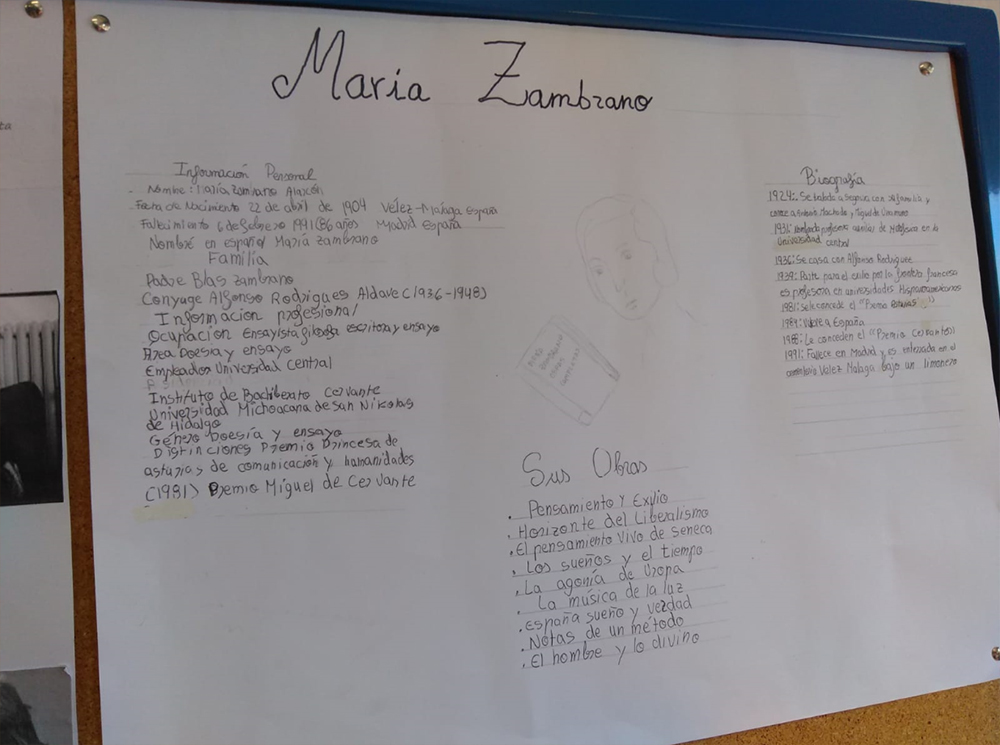 María Zambrano
Información Personal
Nombre: María Zambrano Alarcón
Fecha de Nacimiento 22 de abril de 1904 Vélez-Málaga España
Fallecimiento 6 de febrero 1991 (86 años Madrid España
Nombre en español María Zambrano
Familia
Padre Blas Zambrano
Conyuge Alfonso Rodrigues Aldave (1936-1948)
Informacion profesional
Ocupacion Ensayista filosofa escritora y ensayo
Area Poesía y ensayo
Empleador Universidad Central
Instituto de Bachillerato Cervante
Universidad Michoacana de San Nikolas
de Hidalgo
Género Poesía y ensayo
Distinciones Premio Princesa de
asturias de comunicación y humanidades
(1981) Premio Miguel de Cervante
Sus Obras
. Pensamiento y Exilio
. Horizonte del Liberalismo
. El pensamiento vivo de seneca
. Los sueños y el tiempo
. La agonía de Uropa
. La música de la luz
. España sueño y verdad
. Notas de un método
. El hombre y lo divino
Biografía
1924: Se traslada a Segovia con su familia y
conoce a Antonio Machado y Miguel de Unamuno
1931: profesora auxiliar de Metafísica en la
Universidad central
1936: Se casa con Alfonso Rodrigues
1939: Parte para el exilio por la frontera francesa
es profesora en universidades Hispanoamericanas
1981: Se le concede el "Premio
1984: a España
1988: Le conceden el "Premio Cervantes"
1991: Fallece en Madrid y es enterrada en el
cementerio Velez Malaga bajo un limonero